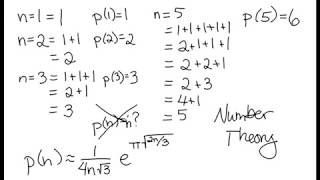 n=1=1 p(1)=1
n=2=1+1 p(2)=2
=2
n=3=1+1+1 p(3)=3
=2+1
=3
p(n)=n?
n=5 p(5)=6
=1+1+1+1+1
=2+1+1+1
=2+2+1
=2+3
=4+1
=5
Number
Theory
p(n)≈1/(4n√3) e^(π√(2n/3))